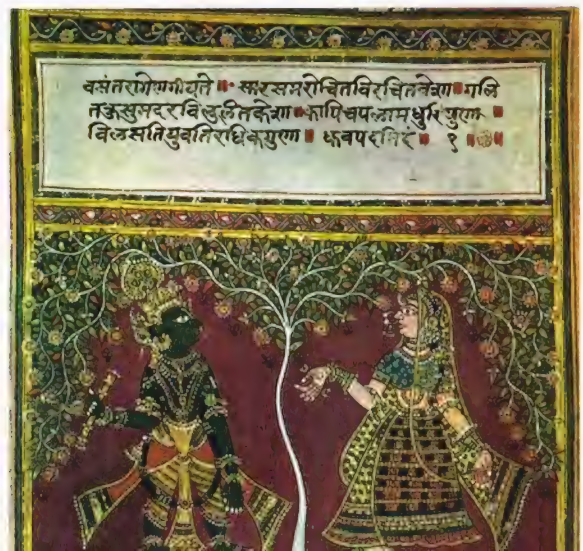 वसंतरागेणगीयते ॥ स्मरसमरोचितविरचितवेशा ॥ गलि
तकुसुमदरविलुलीतकेशा ॥ कापिचपलामधुरिपुणा
विलसतियुवतिरधिकगुणा ॥ ध्रुवपदमिदं ॥ १ ॥